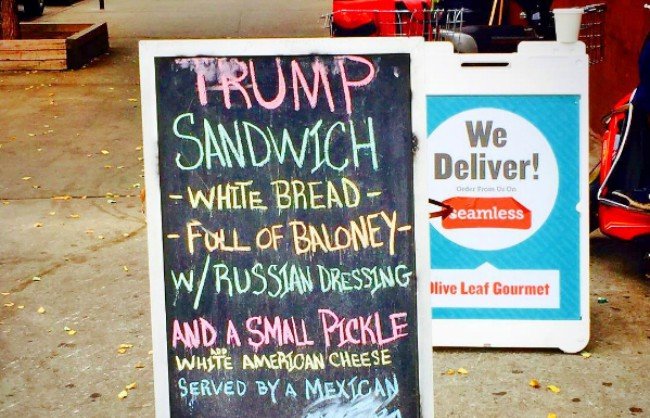 TRUMP
SANDWICH
- WHITE BREAD -
- FULL OF BALONEY -
W/ RUSSIAN DRESSING
AND A SMALL PICKLE
ADD
WHITE AMERICAN CHEESE
SERVED BY A MEXICAN
We
Deliver!
Order From Us On
seamless
Olive Leaf Gourmet